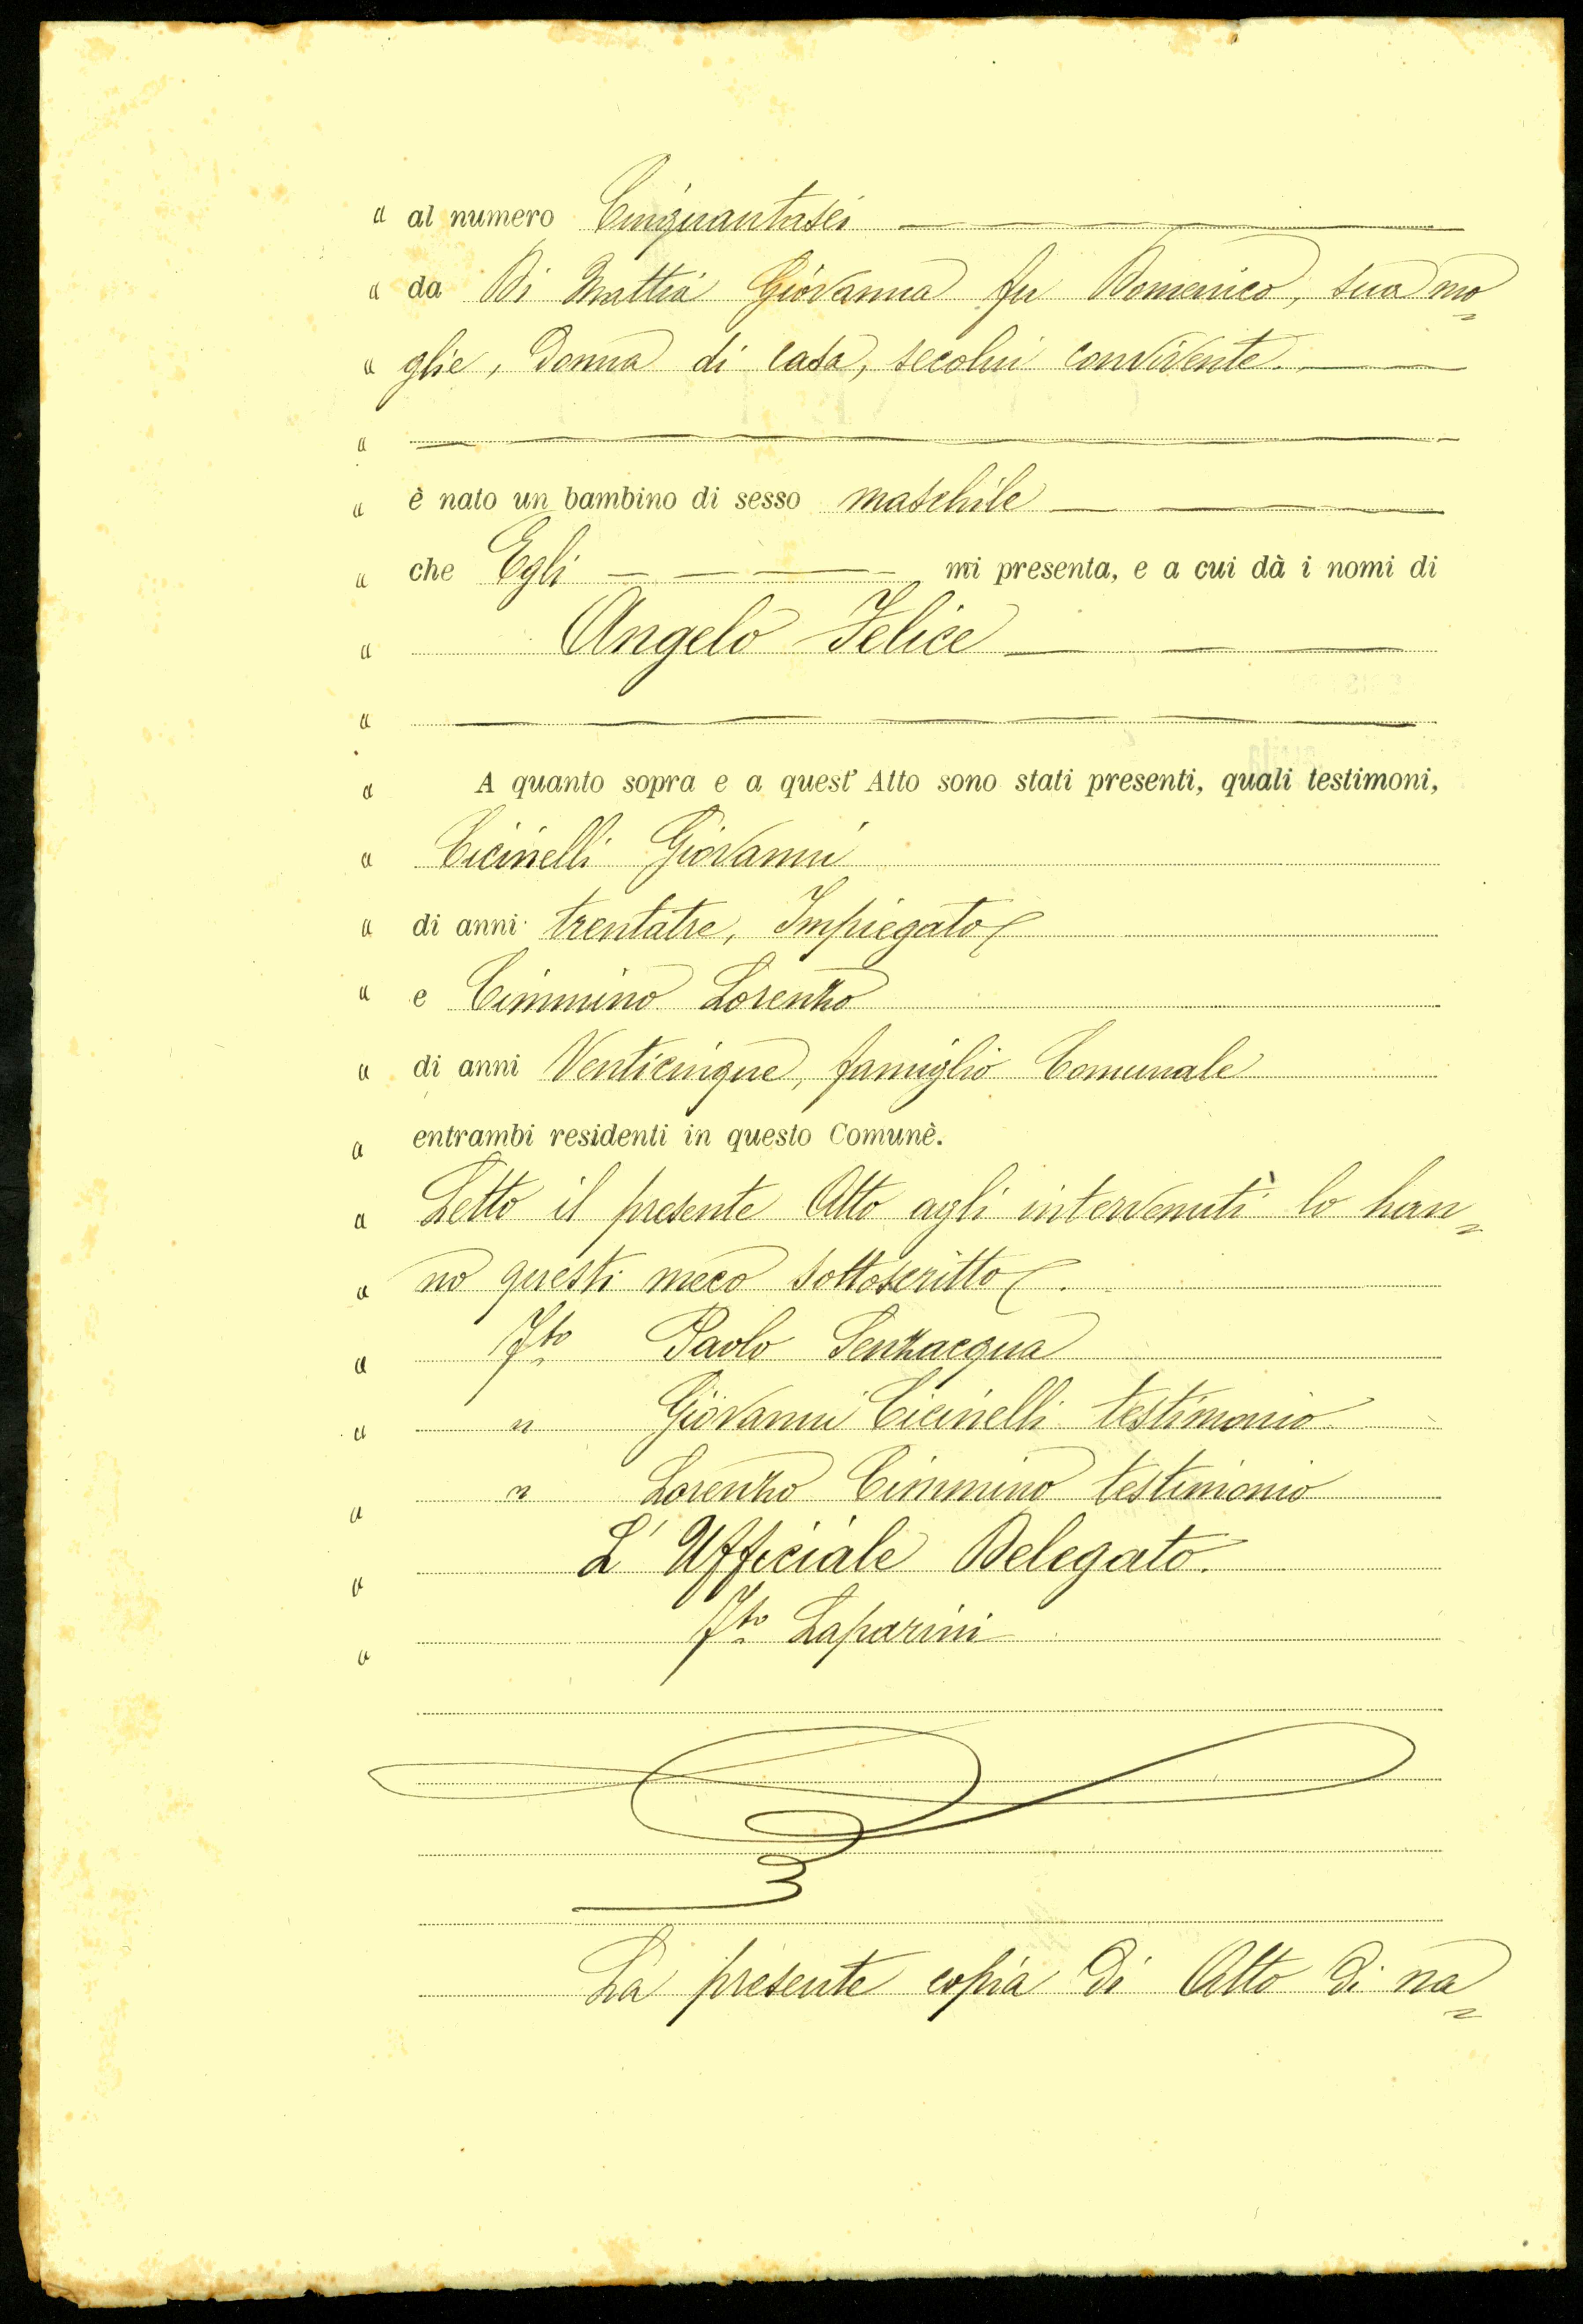 " al numero Cinquantasei
" da Di Mattia Giovanna fu Domenico, sua mo=
" glie, Donna di casa, secolui convivente.
"
" è nato un bambino di sesso maschile
" che Egli mi presenta, e a cui dà i nomi di
" Angelo Felice
"
" A quanto sopra e a quest' Atto sono stati presenti, quali testimoni,
" Cicinelli Giovanni
" di anni trentatre, Impiegato
" e Cimmino Lorenzo
" di anni Venticinque, famiglio Comunale
" entrambi residenti in questo Comune.
" Letto il presente Atto agli intervenuti lo han=
" no questi meco sottoscritto.
" Fto Paolo Senzacqua
" " Giovanni Cicinelli testimonio
" " Lorenzo Cimmino testimonio
" L' Ufficiale Delegato.
" Fto Laparini
La presente copia di Atto di na=